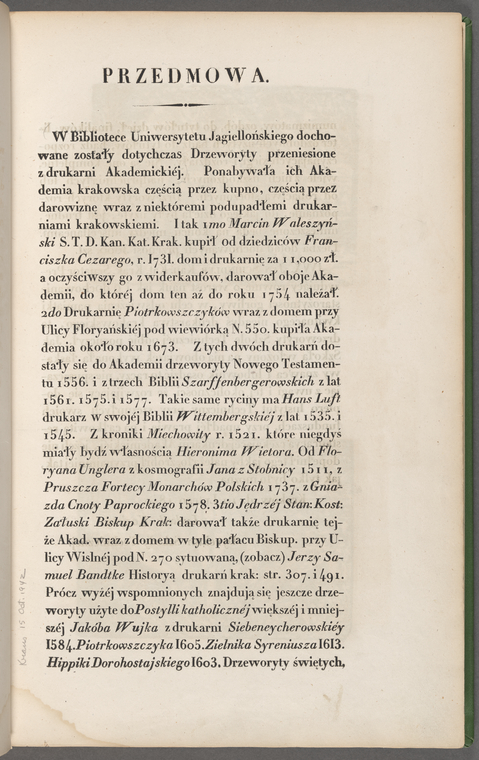 PRZEDMOWA.
W Bibliotece Uniwersytetu Jagiellońskiego docho-
wane zostały dotychczas Drzeworyty przeniesione
z drukarni Akademickiéj. Ponabywała ich Aka-
demia krakowska częścią przez kupno, częścią przez
darowiznę wraz z niektóremi podupadłemi drukar-
niami krakowskiemi. I tak 1mo Marcin Waleszyń-
ski S. T. D. Kan. Kat. Krak. kupił od dziedziców Fran-
ciszka Cezarego, r. 1731. dom i drukarnię za 11,000 zł.
a oczyściwszy go z widerkaufów, darował oboje Aka-
demii, do któréj dom ten aż do roku 1754 należał.
2do Drukarnię Piotrkowszczyków wraz z domem przy
Ulicy Floryańskiéj pod wiewiórką N. 550. kupiła Aka-
demia około roku 1673. Z tych dwóch drukarń do-
stały się do Akademii drzeworyty Nowego Testamen-
tu 1556. i z trzech Biblii Szarffenbergerowskich z lat
1561. 1575. i 1577. Takie same ryciny ma Hans Luft
drukarz w swojéj Biblii Wittembergskiéj z lat 1535. i
1545. Z kroniki Miechowity r. 1521. które niegdyś
miały bydź własnością Hieronima Wietora. Od Flo-
ryana Unglera z kosmografii Jana z Stobnicy 1511, z
Pruszcza Fortecy Monarchów Polskich 1737. z Gnia-
zda Cnoty Paprockiego 1578. 3tio Jędrzéj Stan: Kost:
Załuski Biskup Krak: darował także drukarnię tej-
że Akad. wraz z domem w tyle pałacu Biskup. przy U-
licy Wislnéj pod N. 270 sytuowaną, (zobacz) Jerzy Sa-
muel Bandtke Historya drukarń krak: str. 307. i 491.
Prócz wyżéj wspomnionych znajdują się jeszcze drze-
woryty użyte do Postylli katholicznéj większéj i mniej-
széj Jakóba Wujka z drukarni Siebeneycherowskiéy
1584. Piotrkowszczyka 1605. Zielnika Syreniusza 1613.
Hippiki Dorohostajskiego 1603. Drzeworyty świętych,
Kraus 15 Oct. 1942